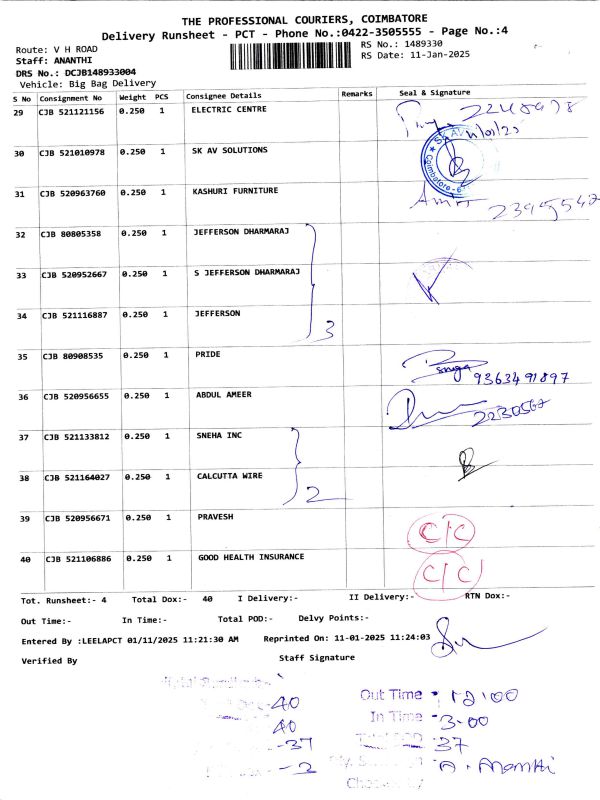 THE PROFESSIONAL COURIERS, COIMBATORE
Delivery Runsheet - PCT - Phone No.:0422-3505555 - Page No.:4
Route: V H ROAD
RS No.: 1489330
Staff: ANANTHI
RS Date: 11-Jan-2025
DRS No.: DCJB148933004
Vehicle: Big Bag Delivery
S No Consignment No Weight PCS Consignee Details Remarks Seal & Signature
29 CJB 521121156 0.250 1 ELECTRIC CENTRE
30 CJB 521010978 0.250 1 SK AV SOLUTIONS
SK AV
Coimbatore
31 CJB 520963760 0.250 1 KASHURI FURNITURE
32 CJB 80805358 0.250 1 JEFFERSON DHARMARAJ
33 CJB 520952667 0.250 1 S JEFFERSON DHARMARAJ
34 CJB 521116887 0.250 1 JEFFERSON
3
35 CJB 80908535 0.250 1 PRIDE
9363491897
36 CJB 520956655 0.250 1 ABDUL AMEER
37 CJB 521133812 0.250 1 SNEHA INC
38 CJB 521164027 0.250 1 CALCUTTA WIRE
2
39 CJB 520956671 0.250 1 PRAVESH C/C
40 CJB 521106886 0.250 1 GOOD HEALTH INSURANCE C/C
Tot. Runsheet:- 4 Total Dox:- 40 I Delivery:- II Delivery:- RTN Dox:-
Out Time:- In Time:- Total POD:- Delvy Points:-
Entered By :LEELAPCT 01/11/2025 11:21:30 AM Reprinted On: 11-01-2025 11:24:03
Verified By Staff Signature
40 Out Time : 12:00
40 In Time 3-00
37 37
2 A. Ananthi